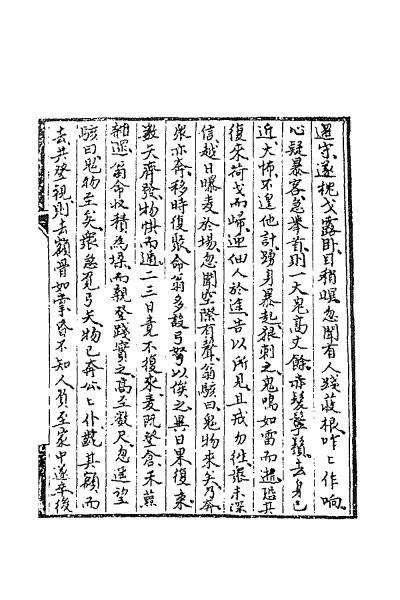 邏守遂枕戈露卧目稍暝忽聞有人踐蕎根咋〻作响
心疑暴客急举首則一大鬼高丈餘赤髮鬡鬚去身已
近大怖不遑他計踴身暴起狠刺之鬼鳴如雷而逝恐其
復来荷戈而歸迎佃人於途告以所見且戒勿往衆未深
信越日曝麦於場忽聞空際有聲翁駭曰鬼物来矣乃奔
衆亦奔移時復聚命翁多設弓弩以俟之異日果復来
數矢齊發物惧而遁二三日竟不復来麦既登倉禾
雜遝翁命收積為垛而親登踐實之高至數尺忽遥望
駭曰鬼物至矣衆急覓弓矢物已奔公〻仆齕其額而
去共登視則去額骨如掌昏不知人負至家中遂卒後